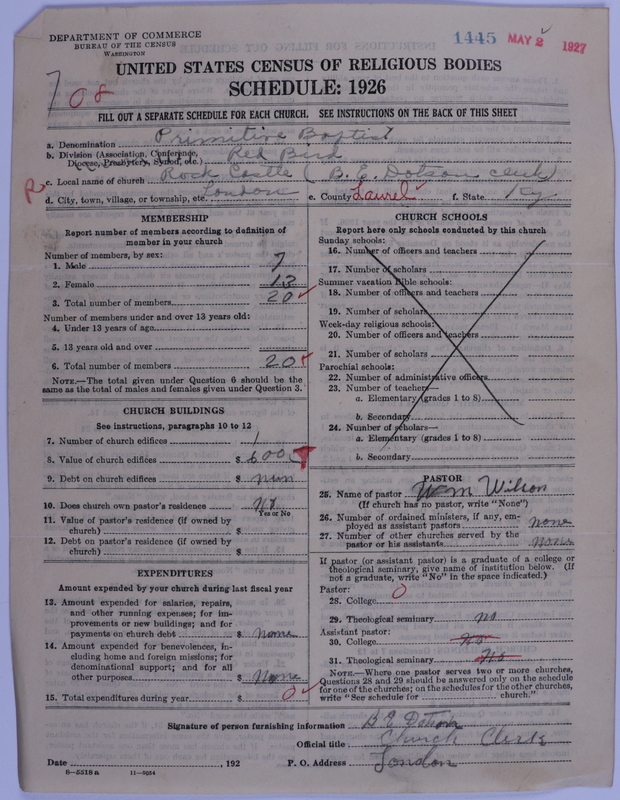 DEPARTMENT OF COMMERCE
BUREAU OF THE CENSUS
WASHINGTON
1445 MAY 2 1927
UNITED STATES CENSUS OF RELIGIOUS BODIES
SCHEDULE: 1926
7 08
FILL OUT A SEPARATE SCHEDULE FOR EACH CHURCH. SEE INSTRUCTIONS ON THE BACK OF THIS SHEET
a. Denomination Primitive Baptist
b. Division (Association, Conference, Diocese, Presbytery, Synod, etc.) Red Bird
c. Local name of church Rock Castle (B. E. Dotson clerk)
d. City, town, village, or township, etc. London e. County Laurel f. State Ky
MEMBERSHIP
Report number of members according to definition of
member in your church
Number of members, by sex:
1. Male 7
2. Female 13
3. Total number of members 20
Number of members under and over 13 years old:
4. Under 13 years of age
5. 13 years old and over
6. Total number of members 20
NOTE.—The total given under Question 6 should be the
same as the total of males and females given under Question 3.
CHURCH BUILDINGS
See instructions, paragraphs 10 to 12
7. Number of church edifices 1
8. Value of church edifices $ 600
9. Debt on church edifices $ nun
10. Does church own pastor's residence No
Yes or No
11. Value of pastor's residence (if owned by
church) $
12. Debt on pastor's residence (if owned by
church) $
EXPENDITURES
Amount expended by your church during last fiscal year
13. Amount expended for salaries, repairs,
and other running expenses; for im-
provements or new buildings; and for
payments on church debt $ none
14. Amount expended for benevolences, in-
cluding home and foreign missions; for
denominational support; and for all
other purposes $ None
15. Total expenditures during year $ 0
CHURCH SCHOOLS
Report here only schools conducted by this church
Sunday schools:
16. Number of officers and teachers
17. Number of scholars
Summer vacation Bible schools:
18. Number of officers and teachers
19. Number of scholars
Week-day religious schools:
20. Number of officers and teachers
21. Number of scholars
Parochial schools:
22. Number of administrative officers
23. Number of teachers—
a. Elementary (grades 1 to 8)
b. Secondary
24. Number of scholars—
a. Elementary (grades 1 to 8)
b. Secondary
PASTOR
25. Name of pastor Wm Wilson
(If church has no pastor, write "None")
26. Number of ordained ministers, if any, em-
ployed as assistant pastors none
27. Number of other churches served by the
pastor or his assistants none
If pastor (or assistant pastor) is a graduate of a college or
theological seminary, give name of institution below. (If
not a graduate, write "No" in the space indicated.)
Pastor:
28. College 0
29. Theological seminary no
Assistant pastor:
30. College No
31. Theological seminary No
NOTE.—Where one pastor serves two or more churches,
Questions 28 and 29 should be answered only on the schedule
for one of the churches; on the schedules for the other churches,
write "See schedule for church."
Signature of person furnishing information B E Dotson
Official title Church Clerk
Date , 192 P. O. Address London
8—5518 a 11—9054